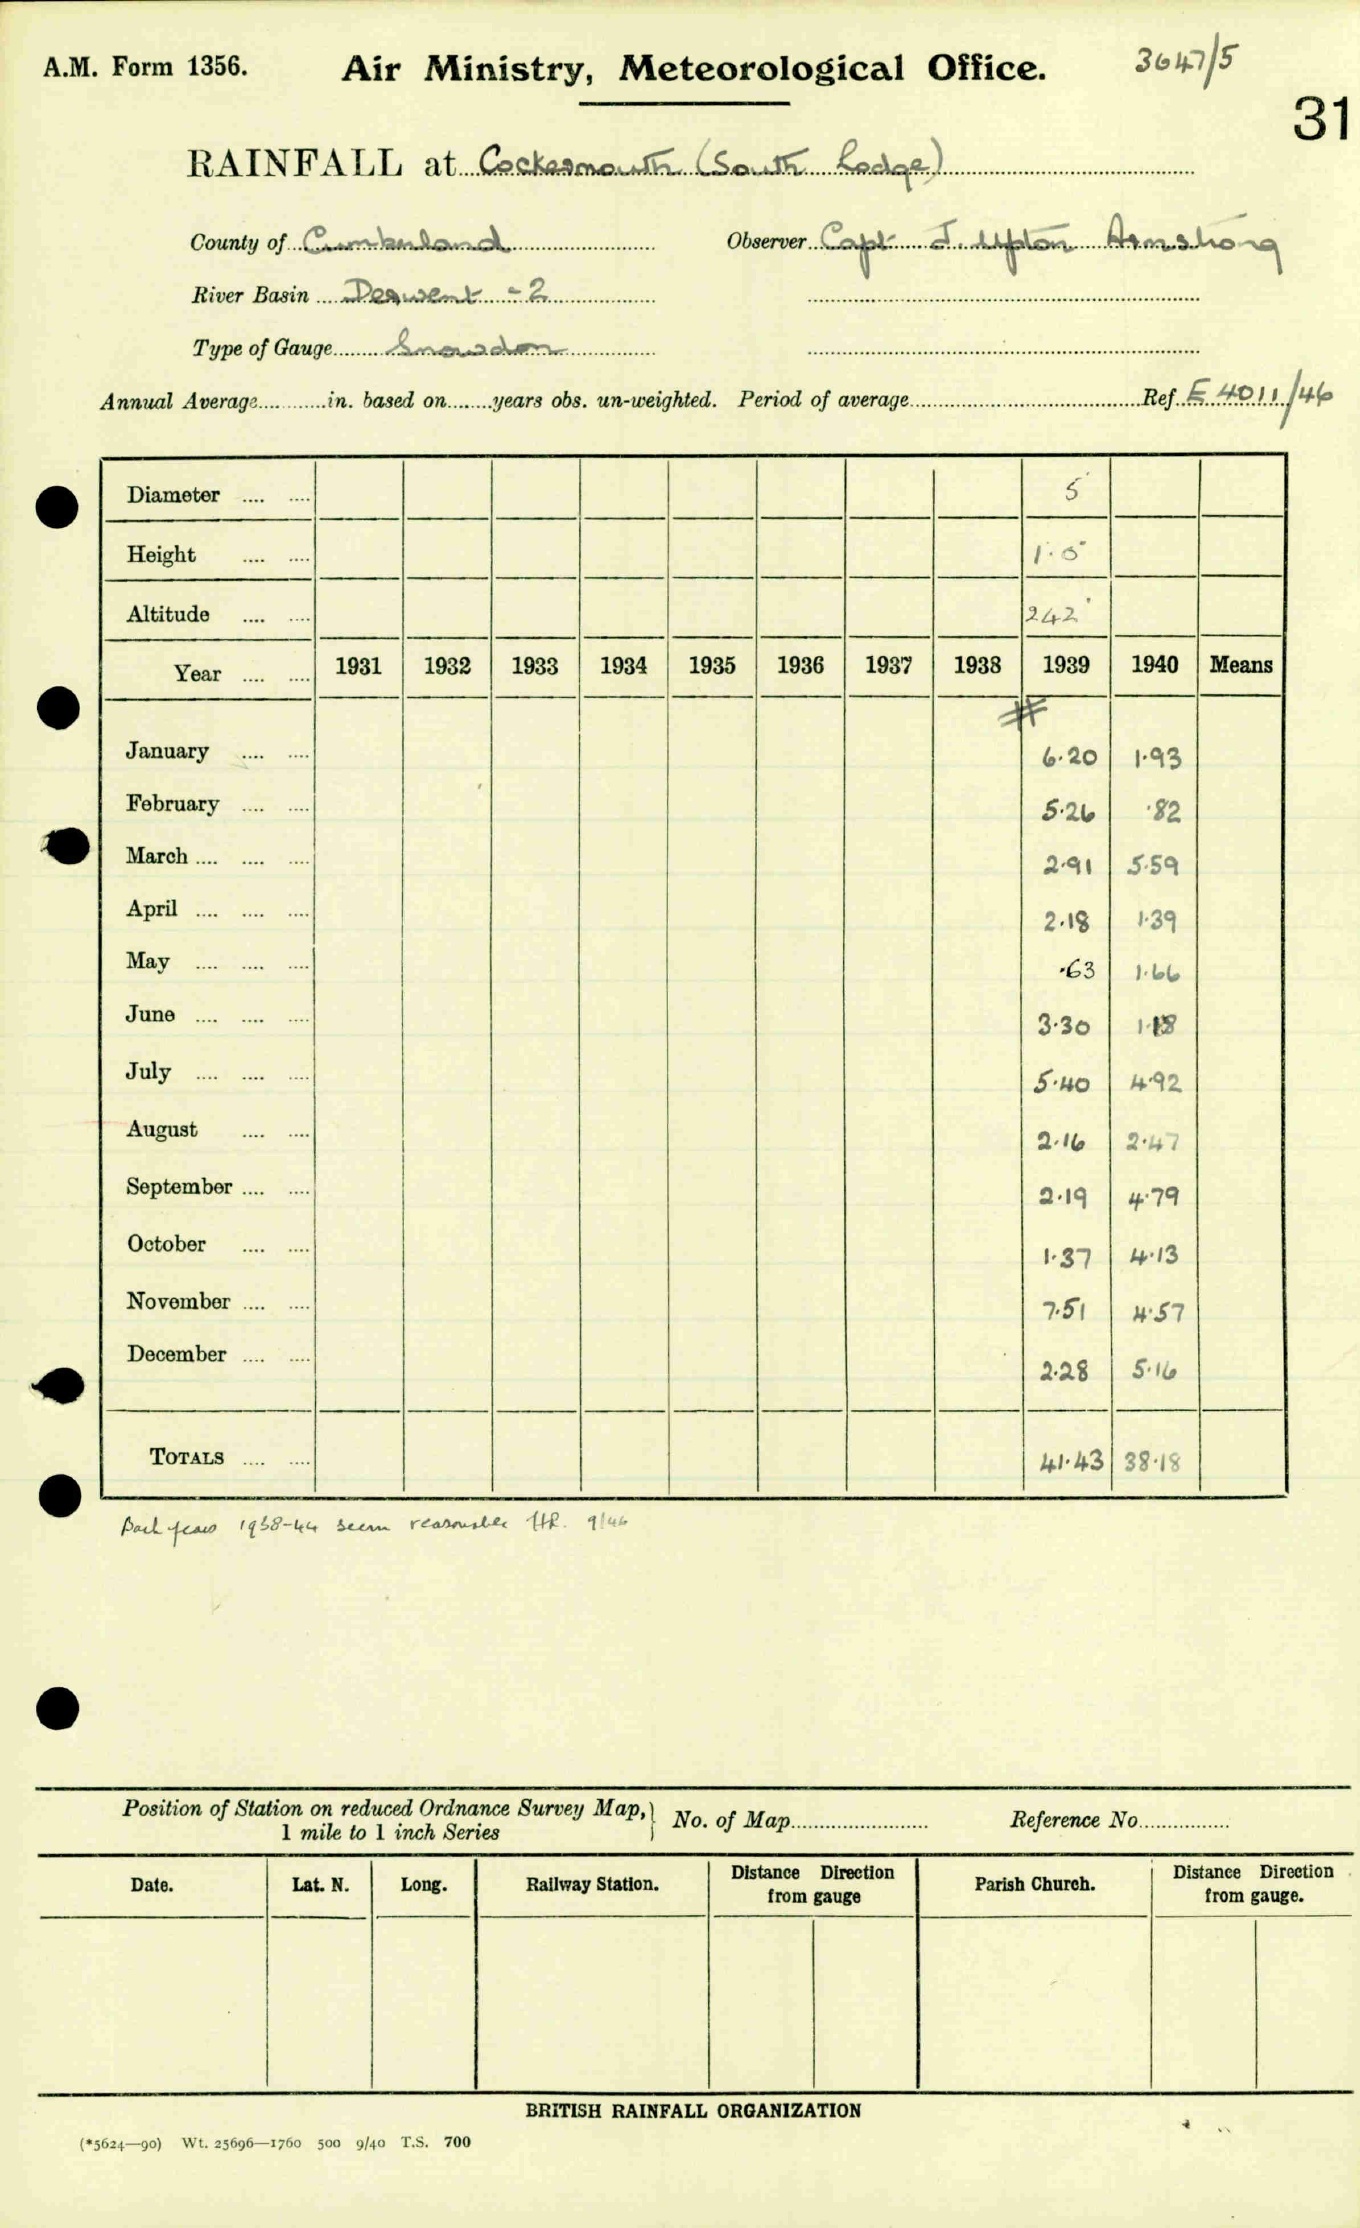 A.M. Form 1356.
Air Ministry, Meteorological Office.
3647/5
31
RAINFALL at Cockermouth (South Lodge)
County of Cumberland Observer Capt J. Upton Armstrong
River Basin Derwent - 2
Type of Gauge Snowdon
Annual Average in. based on years obs. un-weighted. Period of average Ref E 4011/46
Diameter 5
Height 1.0
Altitude 242
Year 1931 1932 1933 1934 1935 1936 1937 1938 1939 1940 Means
January 6.20 1.93
February 5.26 .82
March 2.91 5.59
April 2.18 1.39
May .63 1.66
June 3.30 1.18
July 5.40 4.92
August 2.16 2.47
September 2.19 4.79
October 1.37 4.13
November 7.51 4.57
December 2.28 5.16
TOTALS 41.43 38.18
Back years 1938-44 seem reasonable 9/46
Position of Station on reduced Ordnance Survey Map,} No. of Map Reference No.
1 mile to 1 inch Series
Date. Lat. N. Long. Railway Station. Distance Direction from gauge Parish Church. Distance Direction from gauge.
BRITISH RAINFALL ORGANIZATION
(*5624—90) Wt. 25696—1760 500 9/40 T.S. 700